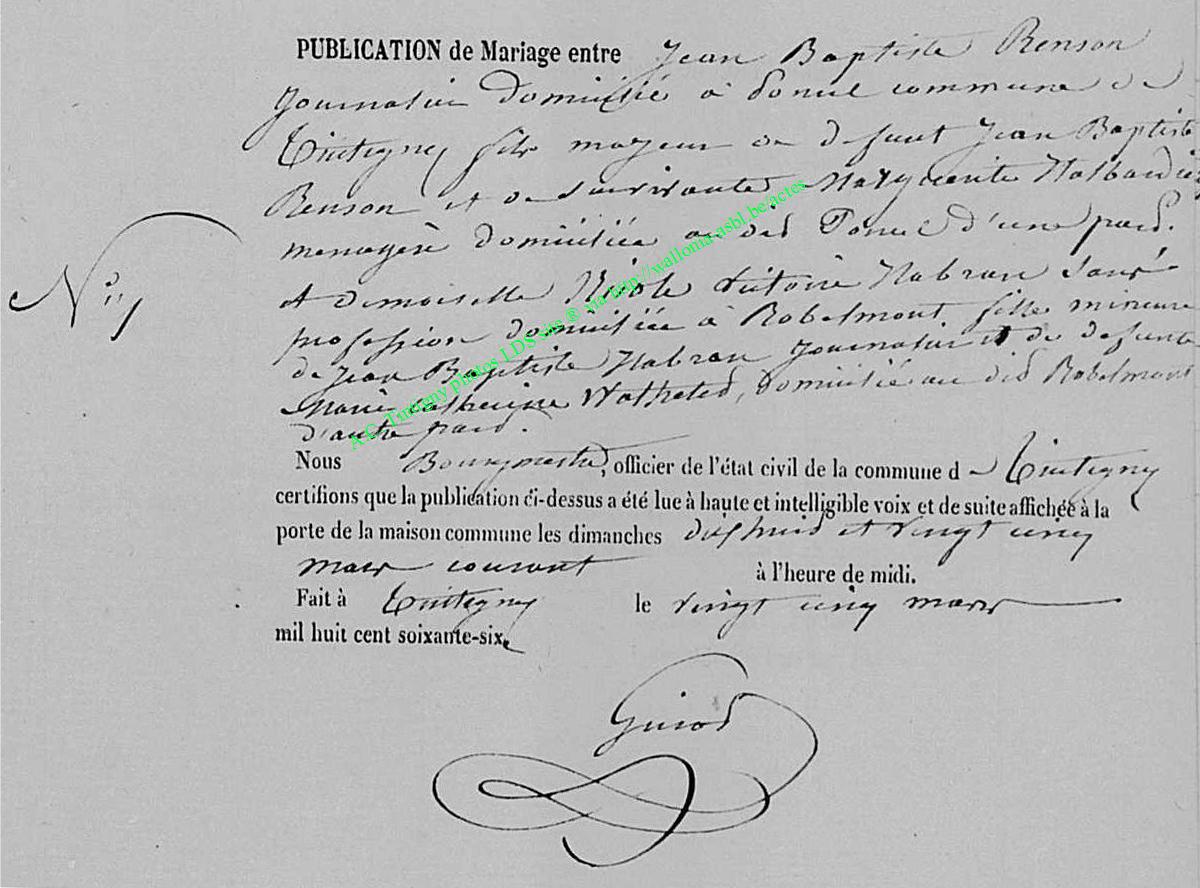 PUBLICATION de Mariage entre Jean Baptiste Renson
Journalier domicilié à Poncel commune de
Tintigny fils majeur de defunt Jean Baptiste
Renson et de Survivante Marguerite Halbardier
menagère domiciliée au dit Poncel d'une part.
N° 7
et demoiselle Nicole Victoire Habran sans
profession domiciliée à Robelmont fille mineure
de Jean Baptiste Habran Journalier et de defunte
Marie Catherine Watheled, domicilié au dit Robelmont
d'autre part.
Nous Bourgmestre, officier de l'état civil de la commune de Tintigny
certifions que la publication ci-dessus a été lue à haute et intelligible voix et de suite affichée à la
porte de la maison commune les dimanches dixhuit et vingt cinq
mars courant à l'heure de midi.
Fait à Tintigny le vingt cinq mars
mil huit cent soixante-six
A.C. Tintigny photos LDS Sas ® via http://wallonia-asbl.be/actes